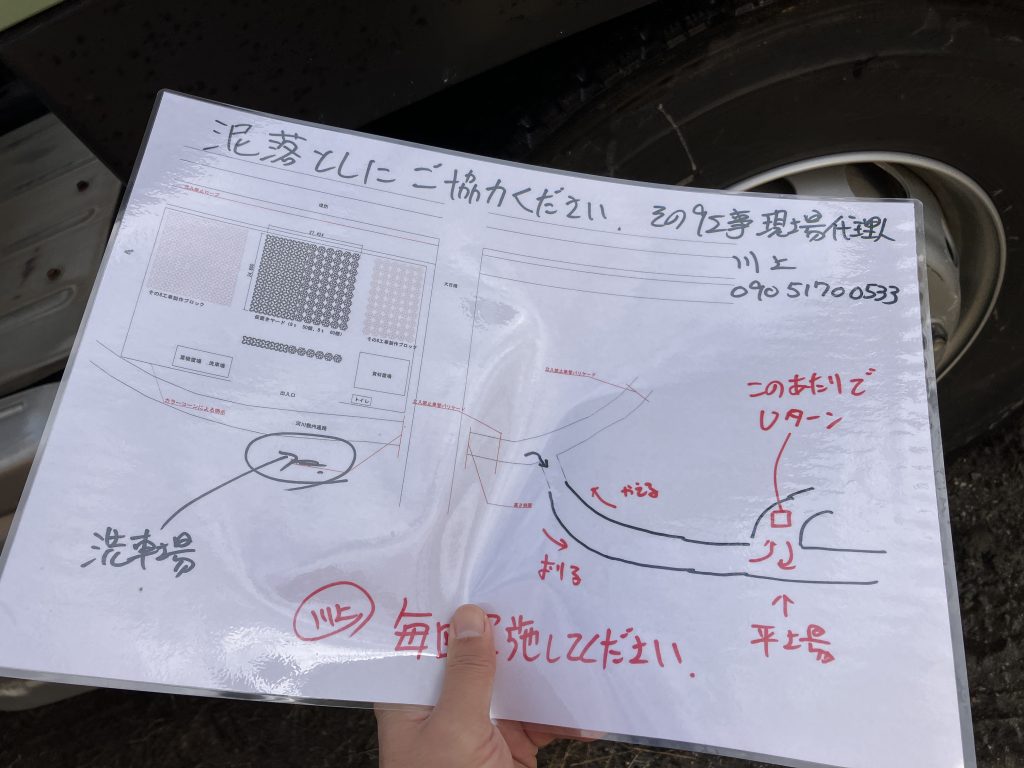 泥落としにご協力ください.
その9工事現場代理人
川上
090 5170 0533
立入禁止ロープ
堤防
27.824
その8工事製作ブロック
仮置きヤード
その8工事製作ブロック
重機置場 洗車場
資材置場
トイレ
出入口
カラーコーンによる明示
河川敷内道路
立入禁止単管バリケード
立入禁止単管バリケード
洗車場
このあたりで
Uターン
おりる
川上
毎回 施してください.